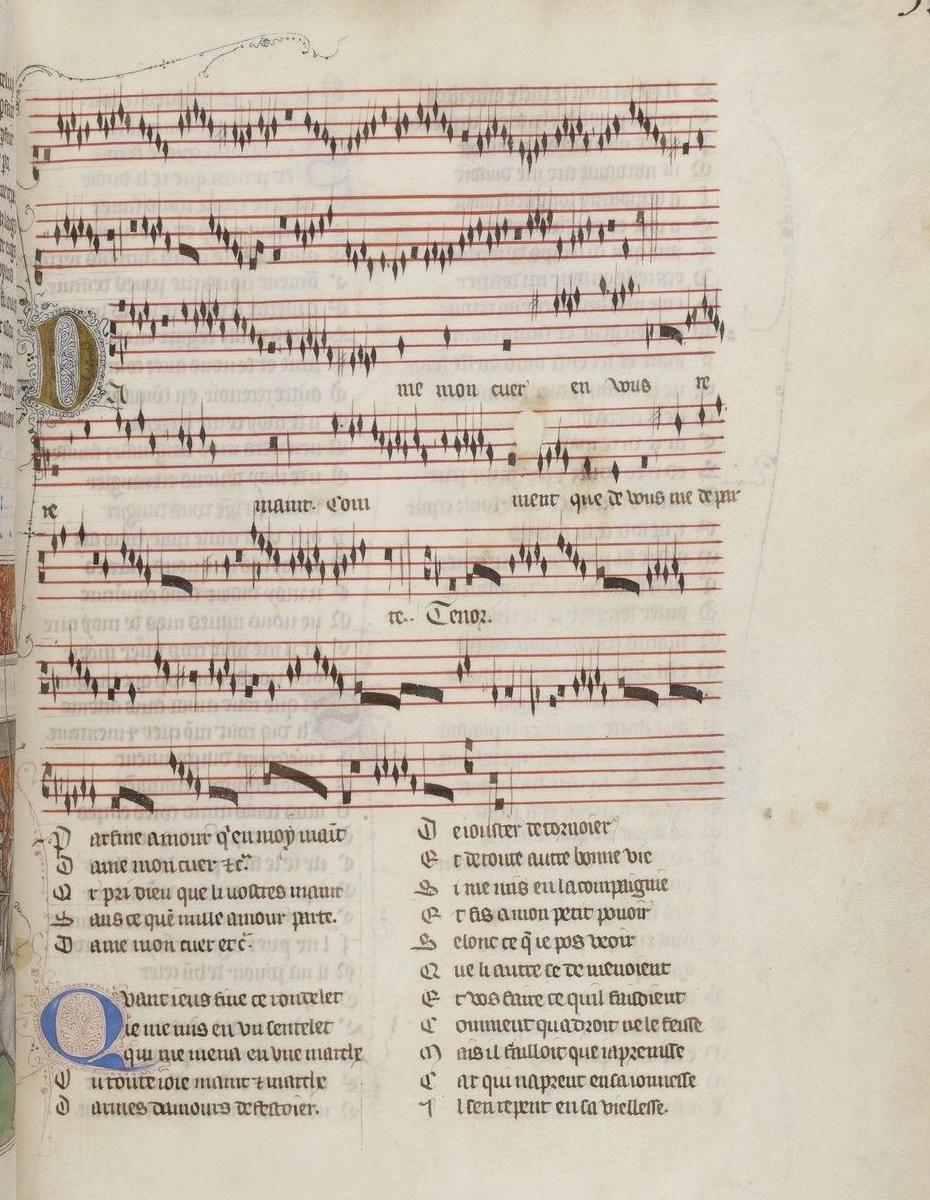 Dame mon cuer en vous re
re maint. Com ment que de vous me depar
te. Tenor.
Par fine amour q̃ en moy maīt
Dame mon cuer ⁊ c̃.
Et pri dieu que li vostres maint
Sans ce quē nulle amour parte.
Dame mon cuer et c̃.
Quant ieus fine ce rondelet
ie me mis en vn sentelet
qui me mena en vne marche
Ou toute ioie maint ⁊ marche
Darmes damours de festoier.
De iouster de tornoier
Et de toute autre bonne vie
Si me mis en la compaignie
Et fis a mon petit pouoir
Selonc ce q̃ ie pos veoir
Que li autre ce demenoient
Et vos faire ce quil faisoient
Comment qua droit ne le feisse
Mais il failloit que iapreinsse
Car qui naprent en sa ionnesse
Il sen repent en sa viellesse.